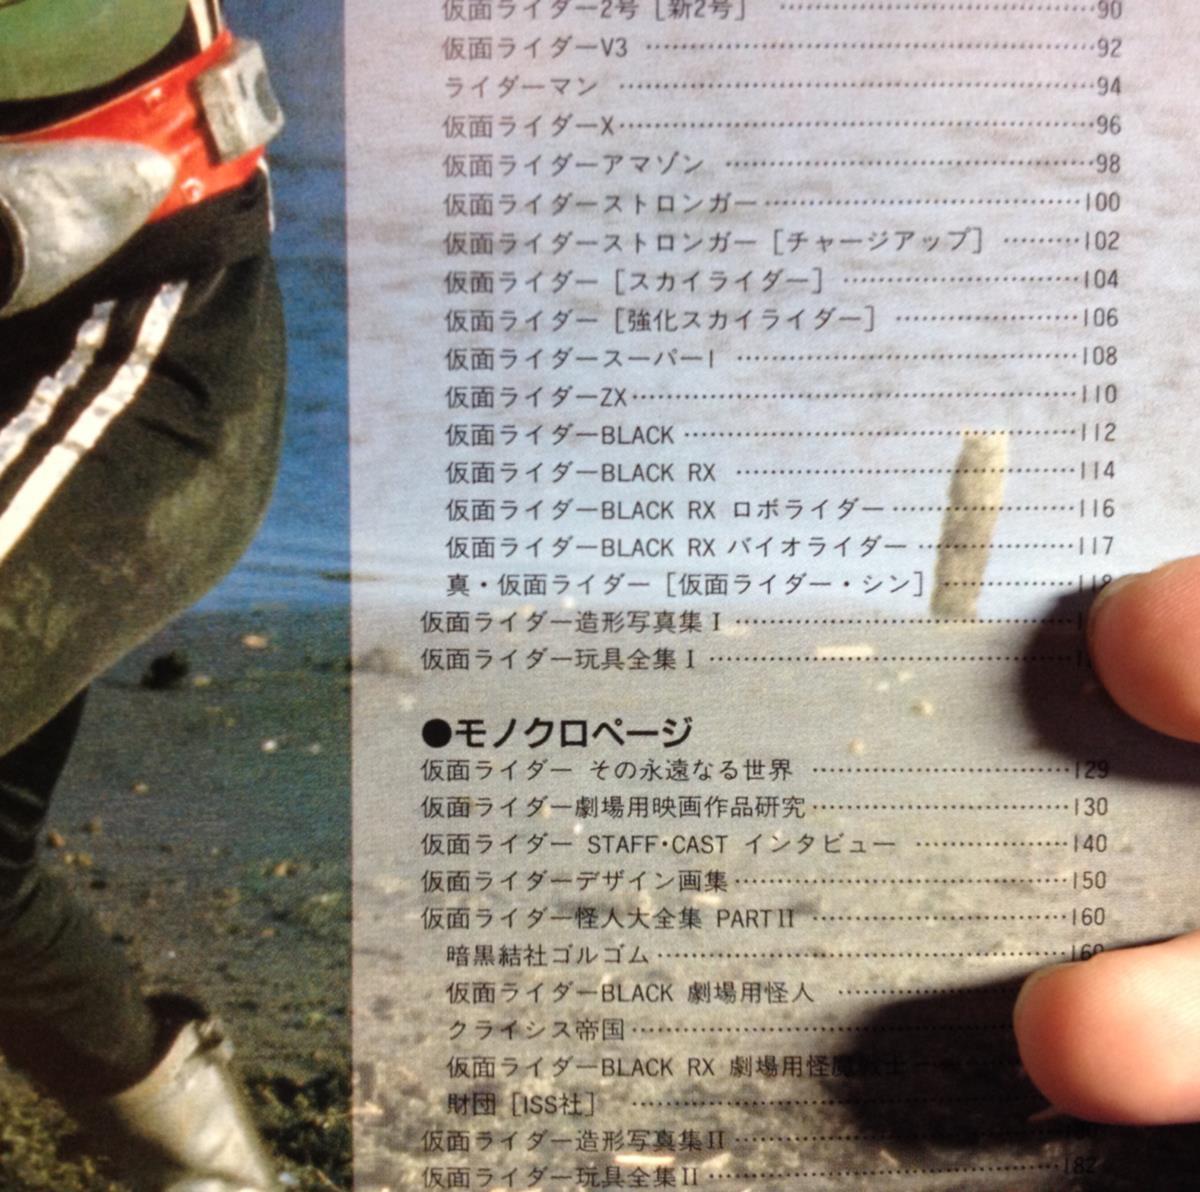 仮面ライダー2号［新2号］ ……90
仮面ライダーV3 ……92
ライダーマン ……94
仮面ライダーX……96
仮面ライダーアマゾン ……98
仮面ライダーストロンガー……100
仮面ライダーストロンガー［チャージアップ］ ……102
仮面ライダー［スカイライダー］ ……104
仮面ライダー［強化スカイライダー］ ……106
仮面ライダースーパー1 ……108
仮面ライダーZX……110
仮面ライダーBLACK ……112
仮面ライダーBLACK RX ……114
仮面ライダーBLACK RX ロボライダー……116
仮面ライダーBLACK RX バイオライダー ……117
真・仮面ライダー［仮面ライダー・シン］ ……118
仮面ライダー造形写真集Ⅰ ……
仮面ライダー玩具全集Ⅰ ……
●モノクロページ
仮面ライダー その永遠なる世界 ……129
仮面ライダー劇場用映画作品研究……130
仮面ライダー STAFF・CAST インタビュー ……140
仮面ライダーデザイン画集……150
仮面ライダー怪人大全集 PARTⅡ ……160
暗黒結社ゴルゴム……160
仮面ライダーBLACK 劇場用怪人 ……
クライシス帝国……
仮面ライダーBLACK RX 劇場用怪魔戦士……
財団［ISS社］ ……
仮面ライダー造形写真集Ⅱ ……
仮面ライダー玩具全集Ⅱ……182